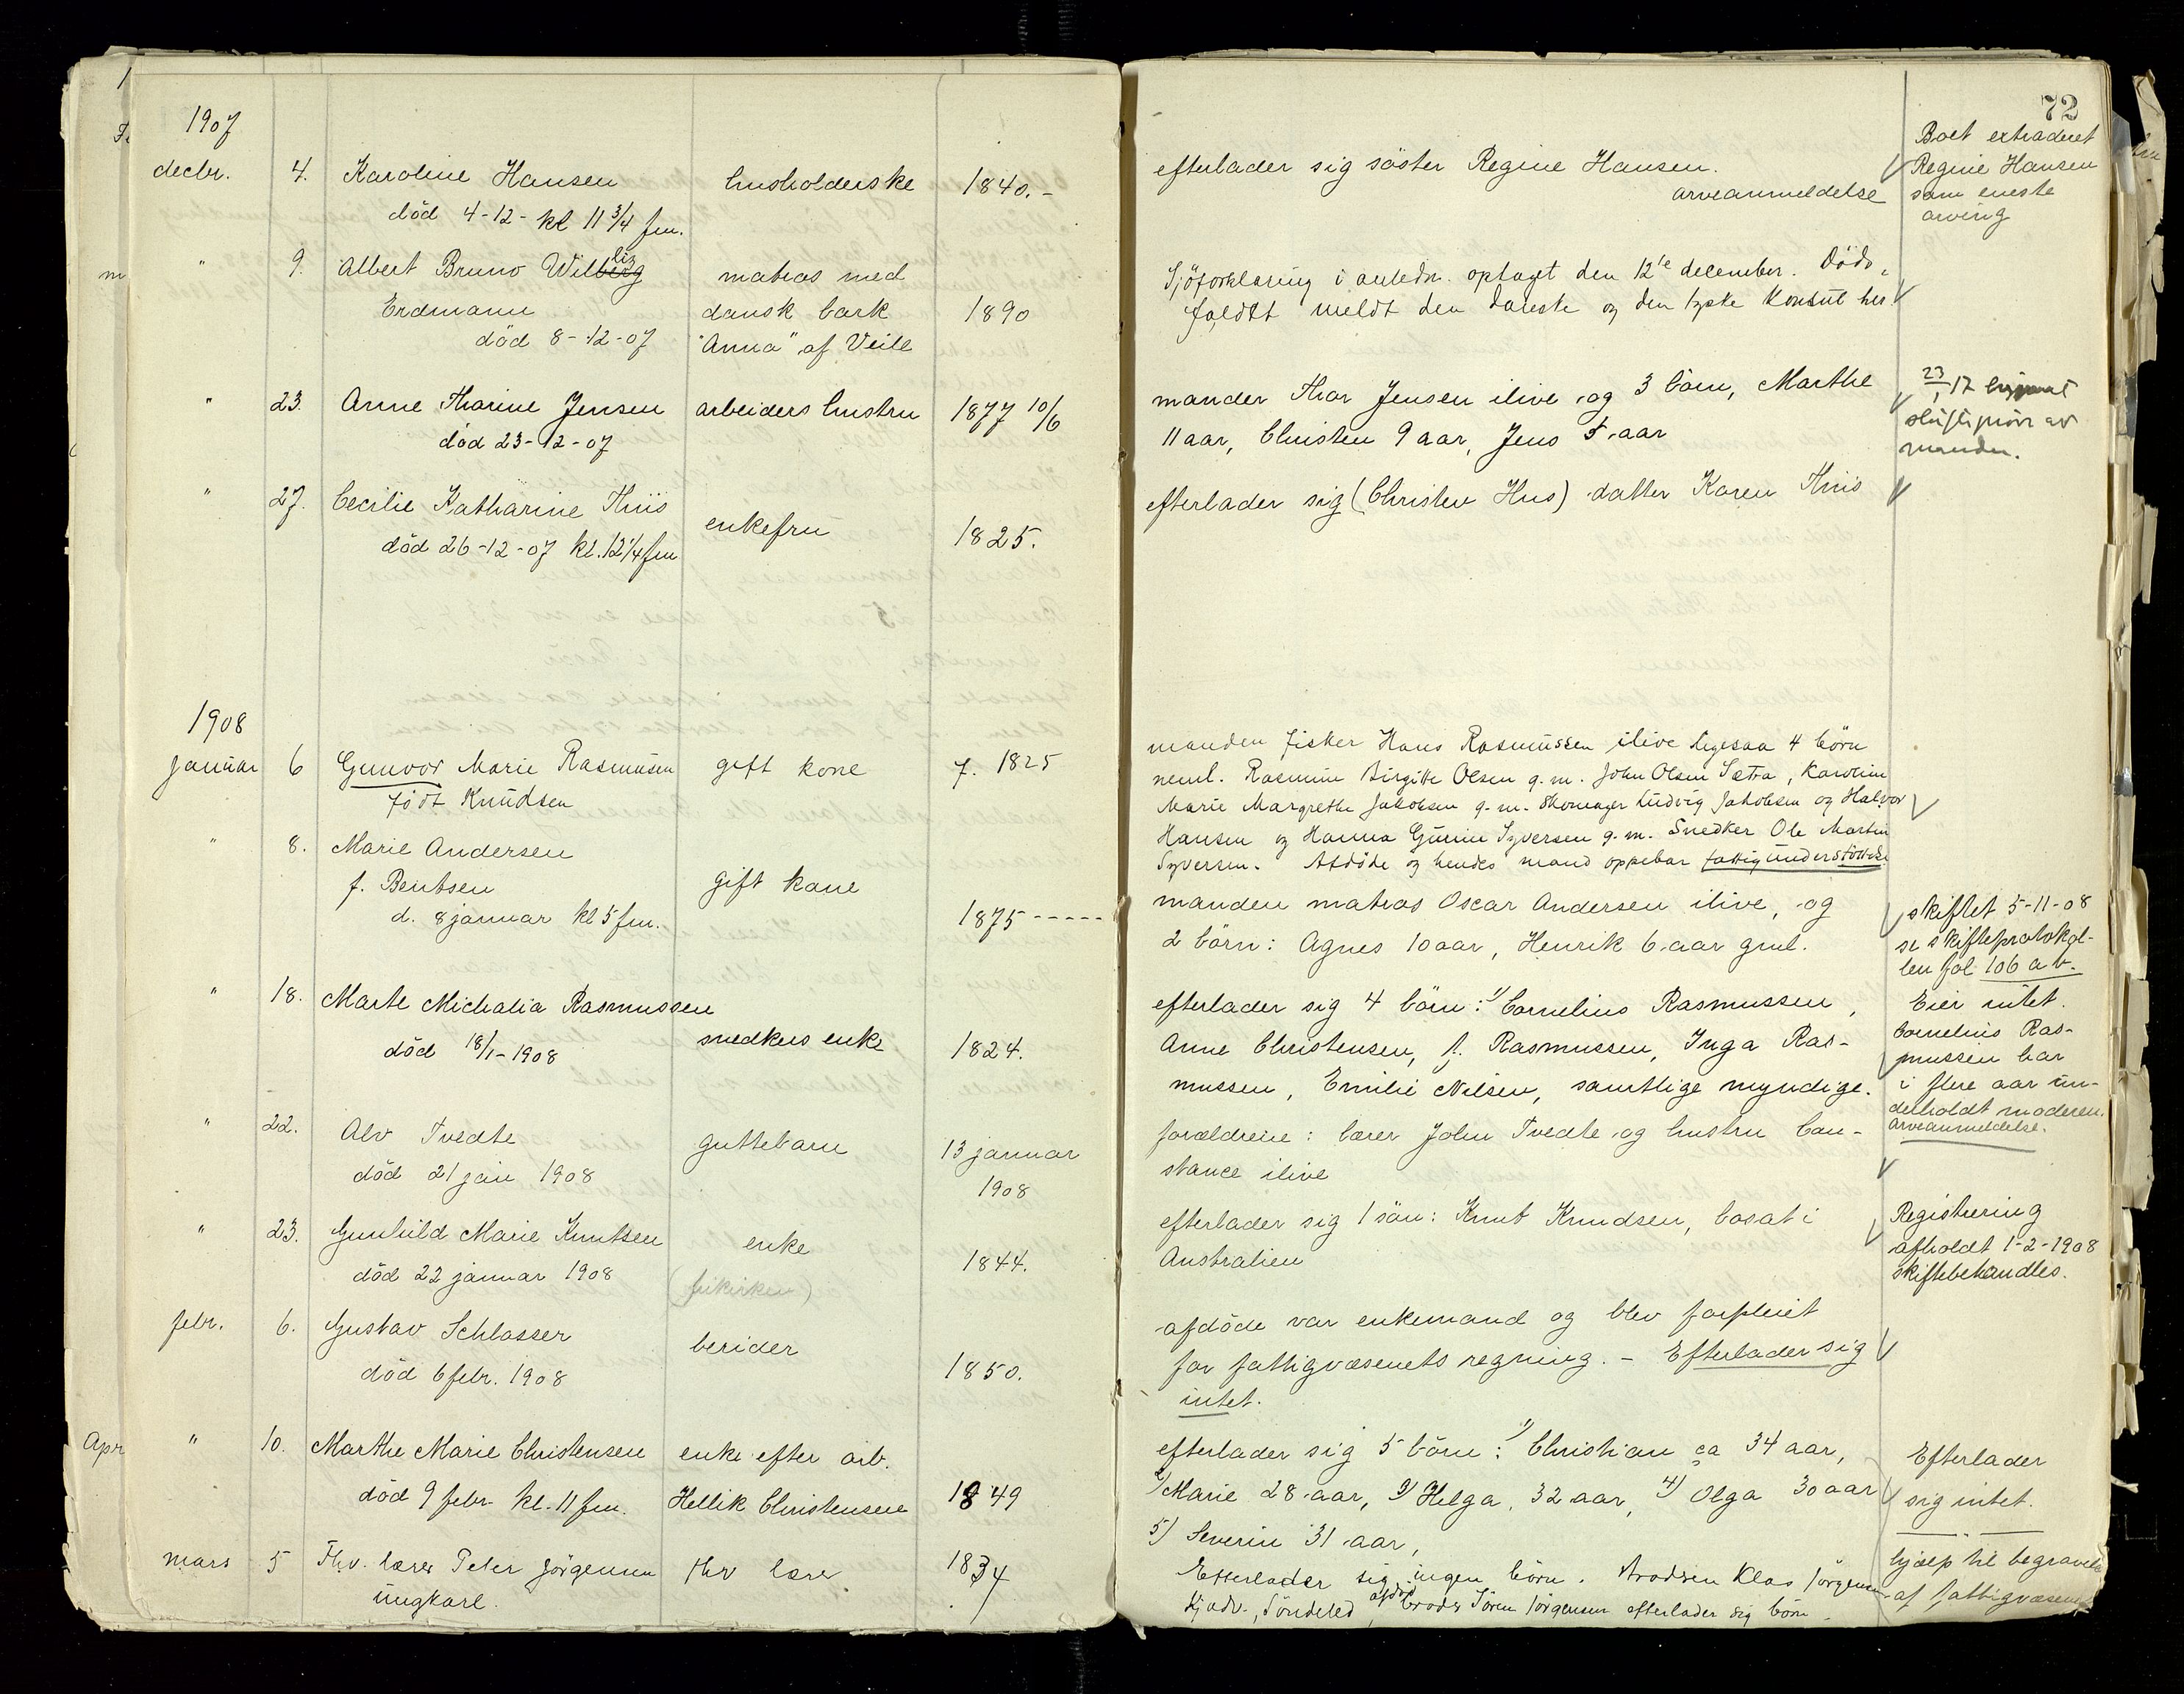 72
1907
decbr. 4. Karoline Hansen husholderske 1840.-
död 4-12- kl 11 3/4 fm.
efterlader sig söster Regine Hansen.
arveanmeldelse
Boet extraderet
Regine Hansen
som eneste
arving
" 9. Albert Bruno Wilberg matros med
Erdmann dansk bark 1890
död 8-12-07 "Anna" af Veile
Sjöforklaring i anledn. optaget den 12te december. Döds-
faldet meldt den danske og den tyske Konsul her
" 23. Anne Tharine Jensen arbeiders hustru 1877 10/6
död 23-12-07
manden Thor Jensen ilive og 3 börn, Marthe
11 aar, Christen 9 aar, Jens 5 aar
23/ 17
av
manden.
" 27. Cecilie Katharine Thiis enkefru 1825.
död 26-12-07 kl. 12 1/4 fm
efterlader sig (Christen Hus) datter Karen Thiis
1908
januar 6 Gunvor Marie Rasmussen gift kone f. 1825
födt Knudsen
manden fisker Hans Rasmussen ilive ligesaa 4 börn
neml. Rasmine Birgitte Olsen g.m. John Olsen Sætra, Karoline
Marie Margrethe Jakobsen g.m. Skomager Ludvig Jakobsen og Halvor
Hansen og Hanna Gurine Syversen g.m. Snedker Ole Martin
Syversen. Afdöde og hendes mand oppebar fattigunderstöttelse
" 8. Marie Andersen
f. Bentsen gift kone
d. 8 januar kl 5 fm. 1875 -----
manden matros Oscar Andersen ilive, og
2 börn: Agnes 10 aar, Henrik 6 aar gml.
skiftet 5-11-08
se skifteprotokol-
len fol 106 a b.
" 18. Marte Michalia Rasmussen
död 18/1-1908 snedkers enke 1824.
efterlader sig 4 börn: 1) Cornelius Rasmussen,
Anne Christensen, f. Rasmussen, Inga Ras-
mussen, Emilie Nilsen, samtlige myndige.
Eier intet.
Cornelius Ras-
mussen har
i flere aar un-
derholdt moderen.
arveanmeldelse.
" 22. Alv Tvedte guttebarn 13 januar
död 21 jan 1908 1908
forældrene: lærer John Tvedte og hustru Con-
stance ilive
" 23. Gunhild Marie Knutsen enke 1844.
död 22 januar 1908
efterlader sig 1 sön: Knut Knudsen, bosat i
Australien
Registrering
afholdt 1-2-1908
skiftebehandles.
febr. 6. Gustav Schlasser berider 1850.
död 6 febr. 1908
afdöde var enkemand og blev forpleiet
for fattigvæsenets regning. - Efterlader sig
intet.
" 10. Marthe Marie Christensen enke efter arb.
död 9 febr. kl. 11 fm. Hellik Christensen 1849
efterlader sig 5 börn: 1) Christian ca 34 aar,
2) Marie 28 aar, 3) Helga, 32 aar, 4) Olga 30 aar
5) Severin 31 aar,
Efterlader
sig intet.
hjælp til begravelse
af fattigvæsenet
mars 5 Fhv. lærer Peter Jörgensen fhv lærer 1834
ungkarl.
Efterlader sig ingen börn. Brodren Klas Jörgensen
Söndeled, afdöd broder Sören Jörgensen efterlader sig börn.
Apr